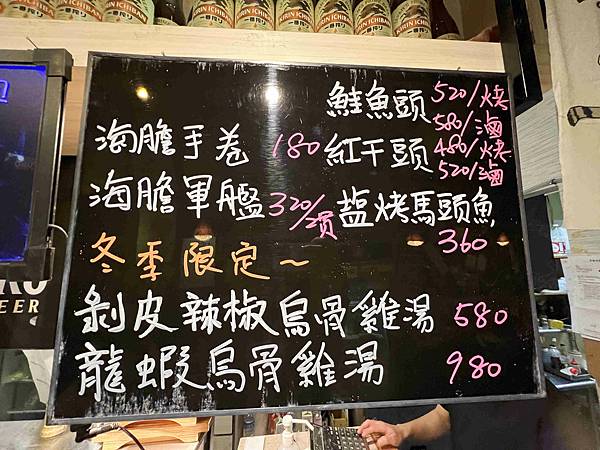 KIRIN ICHIBAN
鮭魚頭 520/燒
580/滷
海膽手卷 180
紅干頭 480/燒
520/滷
海膽軍艦 320/2貫
塩烤馬頭魚
360
冬季限定~
剝皮辣椒烏骨雞湯 580
龍蝦烏骨雞湯 980
BEER